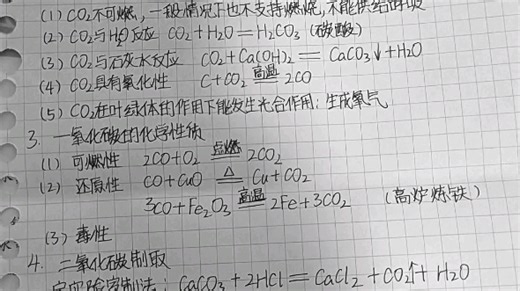 (1) CO₂不可燃,一般情况下也不支持燃烧,不能供给呼吸
(2) CO₂与H₂O反应 CO₂+H₂O=H₂CO₃ (碳酸)
(3) CO₂与石灰水反应 CO₂+Ca(OH)₂=CaCO₃↓+H₂O
(4) CO₂具有氧化性 C+CO₂ 高温= 2CO
(5) CO₂在叶绿体的作用下能发生光合作用:生成氧气
3. 一氧化碳的化学性质
(1) 可燃性 2CO+O₂ 点燃= 2CO₂
(2) 还原性 CO+CuO △= Cu+CO₂
3CO+Fe₂O₃ 高温= 2Fe+3CO₂ (高炉炼铁)
(3) 毒性
4. 二氧化碳制取
实验室制法:CaCO₃+2HCl=CaCl₂+CO₂↑+H₂O